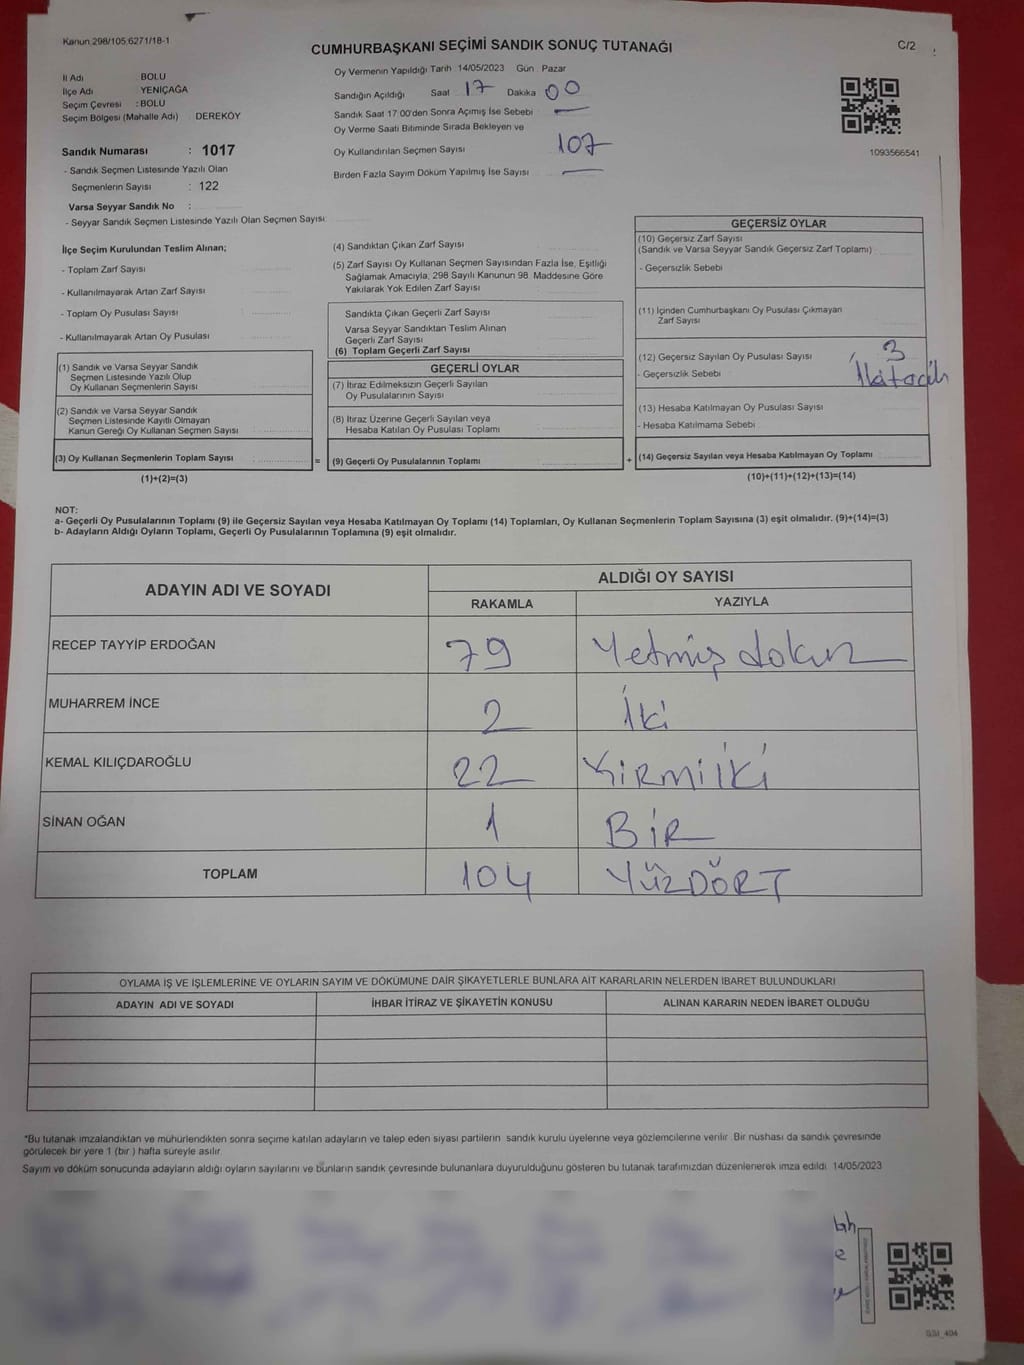 Kanun 298/105,6271/18-1
CUMHURBAŞKANI SEÇİMİ SANDIK SONUÇ TUTANAĞI
C/2
İl Adı BOLU
İlçe Adı YENİÇAĞA
Seçim Çevresi : BOLU
Seçim Bölgesi (Mahalle Adı) DEREKÖY
Oy Vermenin Yapıldığı Tarih 14/05/2023 Gün Pazar
Sandığın Açıldığı Saat 17 Dakika 00
Sandık Saat 17.00'den Sonra Açımış İse Sebebi —
Oy Verme Saati Bitiminde Sırada Bekleyen ve
Oy Kullandırılan Seçmen Sayısı 107
Birden Fazla Sayım Döküm Yapılmış İse Sayısı —
1093566541
Sandık Numarası : 1017
- Sandık Seçmen Listesinde Yazılı Olan
Seçmenlerin Sayısı : 122
Varsa Seyyar Sandık No :
- Seyyar Sandık Seçmen Listesinde Yazılı Olan Seçmen Sayısı:
İlçe Seçim Kurulundan Teslim Alınan;
- Toplam Zarf Sayısı
- Kullanılmayarak Artan Zarf Sayısı
- Toplam Oy Pusulası Sayısı
- Kullanılmayarak Artan Oy Pusulası
(1) Sandık ve Varsa Seyyar Sandık
Seçmen Listesinde Yazılı Olup
Oy Kullanan Seçmenlerin Sayısı
(2) Sandık ve Varsa Seyyar Sandık
Seçmen Listesinde Kayıtlı Olmayan
Kanun Gereği Oy Kullanan Seçmen Sayısı
(3) Oy Kullanan Seçmenlerin Toplam Sayısı =
(1)+(2)=(3)
(4) Sandıktan Çıkan Zarf Sayısı
(5) Zarf Sayısı Oy Kullanan Seçmen Sayısından Fazla İse, Eşitliği
Sağlamak Amacıyla, 298 Sayılı Kanunun 98. Maddesine Göre
Yakılarak Yok Edilen Zarf Sayısı
Sandıkta Çıkan Geçerli Zarf Sayısı
Varsa Seyyar Sandıktan Teslim Alınan
Geçerli Zarf Sayısı
(6) Toplam Geçerli Zarf Sayısı
GEÇERLİ OYLAR
(7) İtiraz Edilmeksizin Geçerli Sayılan
Oy Pusulalarının Sayısı
(8) İtiraz Üzerine Geçerli Sayılan veya
Hesaba Katılan Oy Pusulası Toplamı
(9) Geçerli Oy Pusulalarının Toplamı +
GEÇERSİZ OYLAR
(10) Geçersiz Zarf Sayısı
(Sandık ve Varsa Seyyar Sandık Geçersiz Zarf Toplamı)
- Geçersizlik Sebebi
(11) İçinden Cumhurbaşkanı Oy Pusulası Çıkmayan
Zarf Sayısı
(12) Geçersiz Sayılan Oy Pusulası Sayısı 3
- Geçersizlik Sebebi
(13) Hesaba Katılmayan Oy Pusulası Sayısı
- Hesaba Katılmama Sebebi
(14) Geçersiz Sayılan veya Hesaba Katılmayan Oy Toplamı
(10)+(11)+(12)+(13)=(14)
NOT:
a- Geçerli Oy Pusulalarının Toplamı (9) ile Geçersiz Sayılan veya Hesaba Katılmayan Oy Toplamı (14) Toplamları, Oy Kullanan Seçmenlerin Toplam Sayısına (3) eşit olmalıdır. (9)+(14)=(3)
b- Adayların Aldığı Oyların Toplamı, Geçerli Oy Pusulalarının Toplamına (9) eşit olmalıdır.
ADAYIN ADI VE SOYADI ALDIĞI OY SAYISI
RAKAMLA YAZIYLA
RECEP TAYYİP ERDOĞAN 79 Yetmiş dokuz
MUHARREM İNCE 2 İki
KEMAL KILIÇDAROĞLU 22 YirmiİKi
SİNAN OĞAN 1 BİR
TOPLAM 104 YÜZDÖRT
OYLAMA İŞ VE İŞLEMLERİNE VE OYLARIN SAYIM VE DÖKÜMÜNE DAİR ŞİKAYETLERLE BUNLARA AİT KARARLARIN NELERDEN İBARET BULUNDUKLARI
ADAYIN ADI VE SOYADI İHBAR İTİRAZ VE ŞİKAYETİN KONUSU ALINAN KARARIN NEDEN İBARET OLDUĞU
*Bu tutanak imzalandıktan ve mühürlendikten sonra seçime katılan adayların ve talep eden siyasi partilerin sandık kurulu üyelerine veya gözlemcilerine verilir. Bir nüshası da sandık çevresinde
görülecek bir yere 1 (bir) hafta süreyle asılır.
Sayım ve döküm sonucunda adayların aldığı oyların sayılarını ve bunların sandık çevresinde bulunanlara duyurulduğunu gösteren bu tutanak tarafımızdan düzenlenerek imza edildi. 14/05/2023